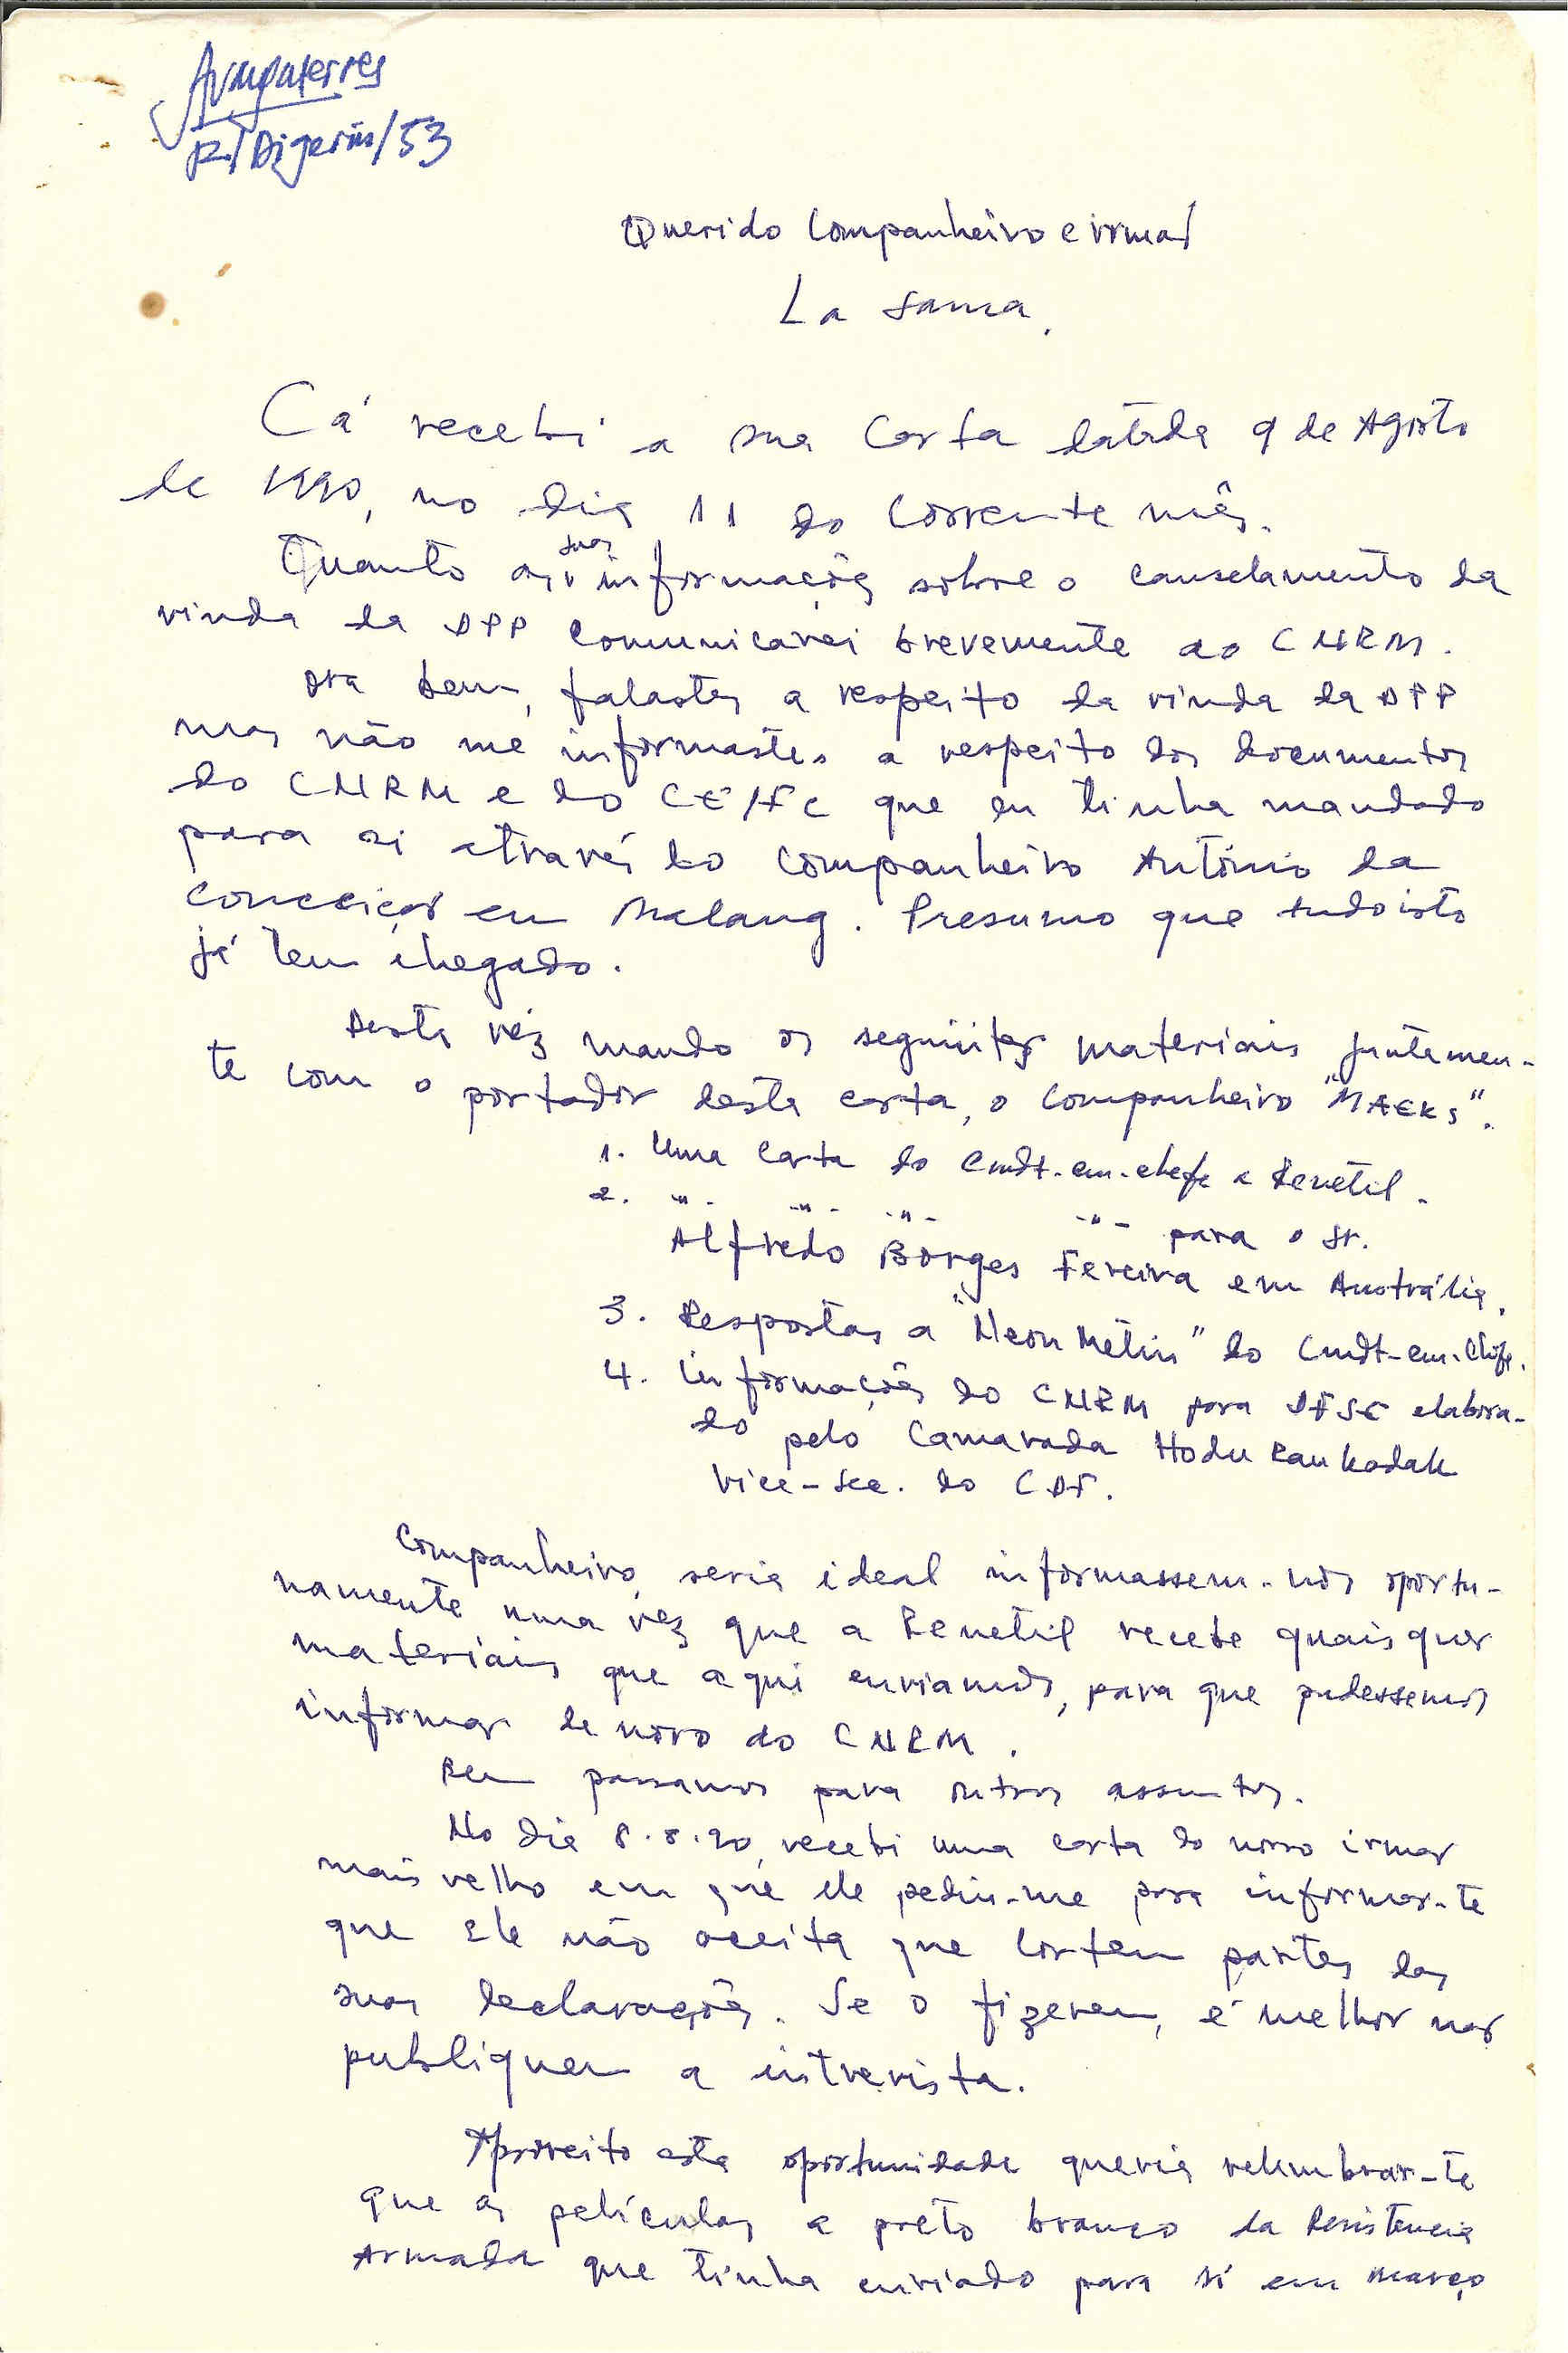 R/Digerir/53
Querido Companheiro e irmão
La Sama,
Cá recebi a sua Carta datada 9 de Agosto
de 1990, no dia 11 do Corrente mês.
Quanto as suas informações sobre o canselamento da
vinda da DPP comunicarei brevemente ao CNRM.
Ora bem, falastes a respeito da vinda da DPP
mas não me informastes a respeito dos documentos
do CNRM e do CE/FC que eu tinha mandado
para si através do companheiro António da
Conceição em Malang. Presumo que tudo isto
já tem chegado.
Desta vêz mando os seguintes materiais juntamen-
te com o portador desta carta, o Companheiro "MAEKS".
1. Uma Carta do Cmdt-em-chefe a Renetil.
2. -"- -"- -"- -"- para o Sr.
Alfredo Borges Fereira em Austrália.
3. Respostas a "Neon Metin" do Cmdt-em-Chefe.
4. Informações do CNRM para DFSE elabora-
do pelo Camarada Hodu Ran Kadak
Vice-Sec. do CDF.
Companheiro, seria ideal informassem-nos oportu-
namente uma vez que a Renetil recebe quaisquer
materiais que aqui enviamos, para que pudessemos
informar de novo ao CNRM.
Bem passamos para outros assuntos.
No dia 8.8.90, recebi uma carta do nosso irmão
mais velho em que ele pediu-me para informar-te
que ele não aceita que Cortem partes das
suas declarações. Se o fizerem, é melhor não
publiquem a intrevista.
Aproveito esta oportunidade queria relembrar-te
que as películas a preto branco da Resistencia
Armada que tinha enviado para si em março